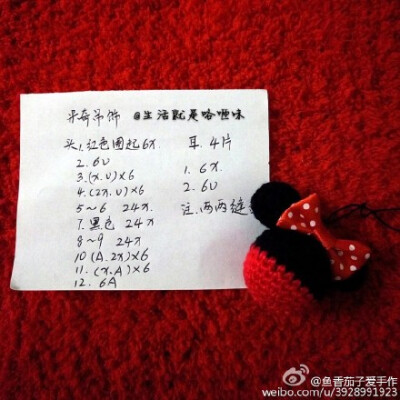 米奇吊饰 @生活就是咯咂味
头 1. 红色圈起6x
2. 6v
3. (x.v)×6
4. (2x.v)×6
5~6 24x
7. 黑色 24x
8~9 24x
10 (A.2x)×6
11. (x.A)×6
12. 6A
耳. 4片
1. 6x
2. 6v
注. 两两缝
@鱼香茄子爱手作
weibo.com/u/3928991923